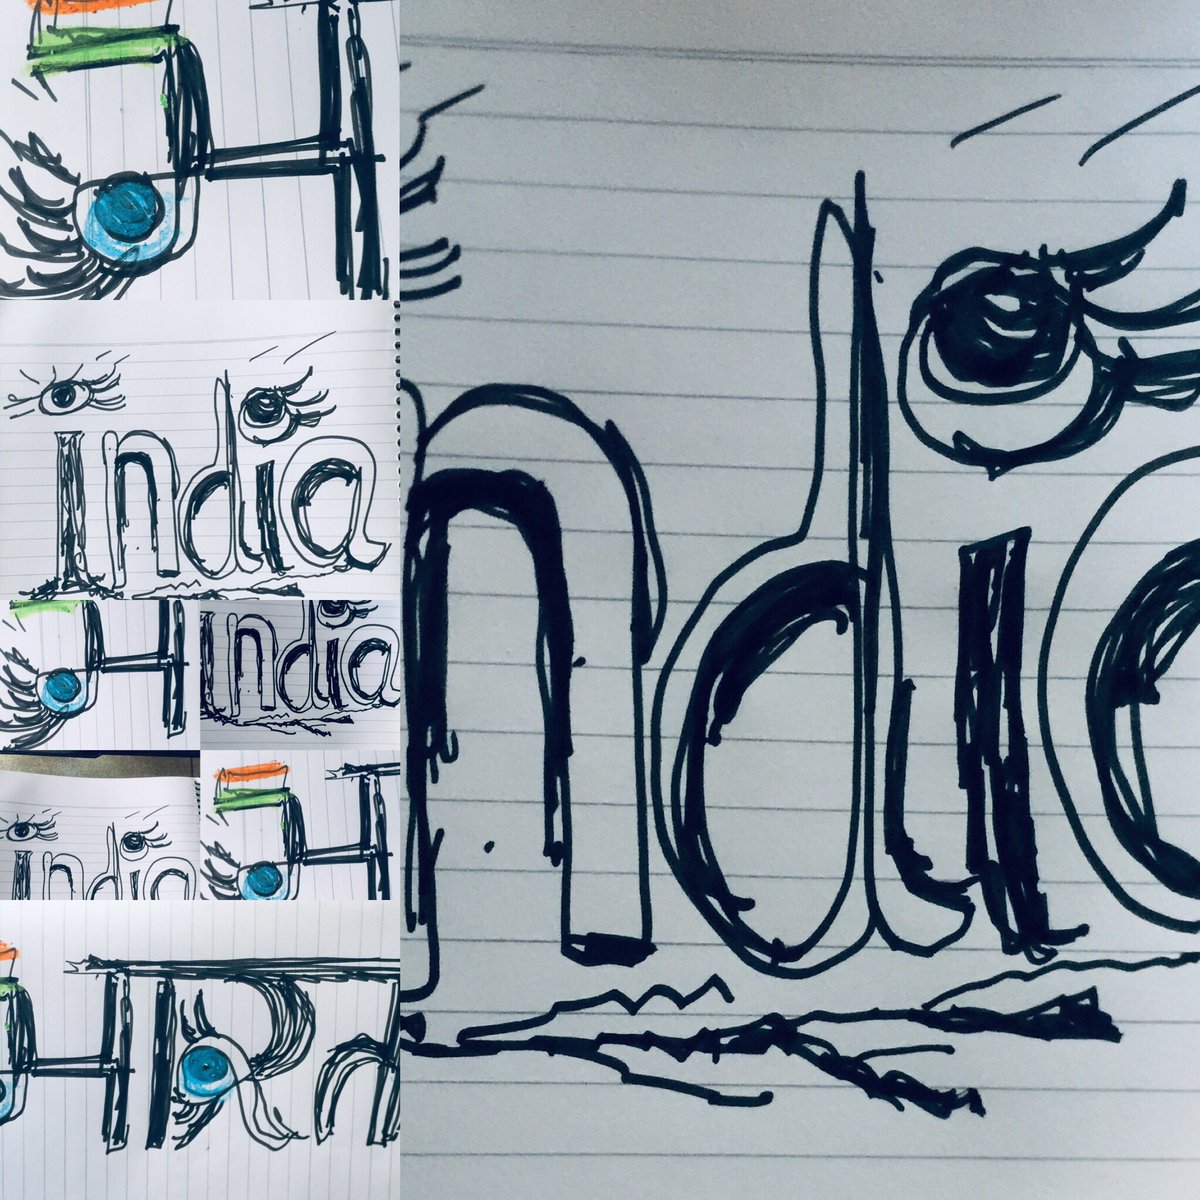 भ
India
ndia
भ
India
India
भ
भारत